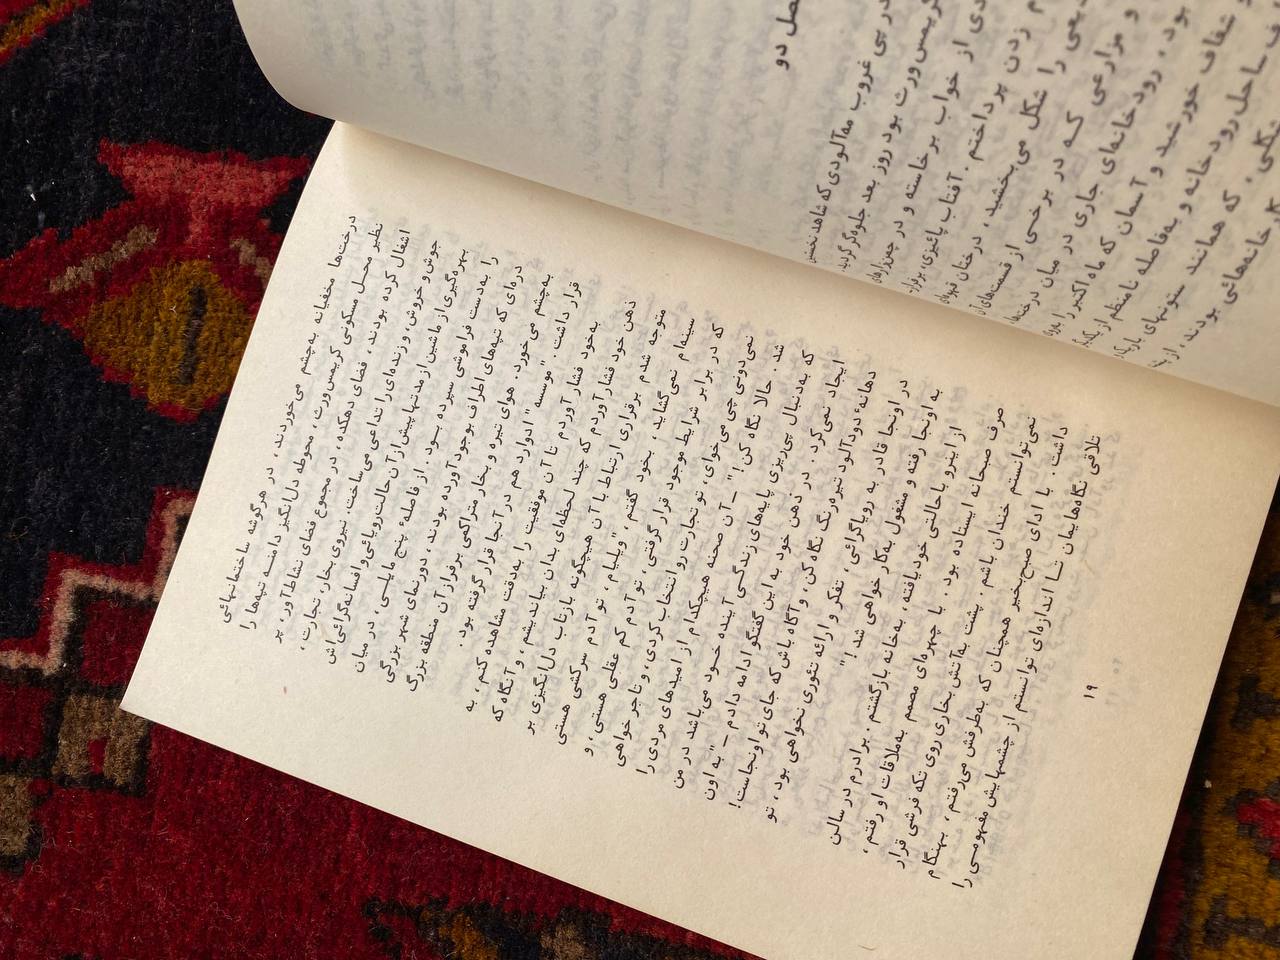 فصل دو
درپی غروب مه‌آلودی که شاهد نخستین
کریمس‌ورث بود روز بعد جلوه‌گر گردید.
دی از خواب برخاسته و در چمن‌زارهای
م زدن پرداختم. آفتاب پائیزی، برفراز
یعی را شکل می‌بخشید، درختان قهوه‌ای
و مزارعی کـه در برخی از قسمت‌های آن
بود، رودخانه‌ای جاری در میان درخت‌ها
و شفاف خورشید و آسمان که ماه اکتبر را
ف ساحل رودخانه و به‌فاصله نامنظم از یکدیگر
شکلی، که همانند ستونهای باریک
کارخانه‌هائی بودند، از پشت
درخت‌ها مخفیانه به‌چشم می‌خوردند، در هرگوشه ساختمانهائی
نظیر محل مسکونی کریمس‌ورث، محوطه دل‌انگیز دامنـه تپه‌ها را
اشغال کرده بودند، فضای دهکده، در مجموع فضای نشاط‌آور، پر
جوش و خروش، و زنده‌ای را تداعی می‌ساخت، نیروی بخار، تجارت،
بهره‌گیری از ماشین از مدتها پیش از آن حالت رویائی و افسانه‌گرائی‌اش
را به‌دست فراموشی سپرده بـود. از فاصلهٔ پنج مایلـی، در میان
دره‌ای که تپه‌های اطراف بوجود آورده بودند، دورنمای شهر بزرگی
به‌چشم می‌خورد. هوای تیره و بخار متراکمی برفراز آن منطقه بزرگ
قرار داشت. "موسسه" ادوارد هم در آنجا قرار گرفته بود.
به‌خود فشار آوردم تا آن موفقیت را به‌دقت مشاهده کنم، به
ذهن خود فشار آوردم که چند لحظه‌ای بدان بیاندیشم، و آنگاه که
متوجه شدم برقراری ارتباط با آن هیچگونه بازتاب دل‌انگیزی بر
سینه‌ام نمی‌گشاید، بخود گفتم، "ویلیام، تو آدم سرکشی هستی
که در برابر شرایط موجود قرار گرفتی، تو آدم کم عقلی هستی، و
نمی‌دونی چی می‌خوای، تو تجارت رو انتخاب کردی، و تاجر خواهی
شد. حالا نگاه کن!" ــ آن صحنه هیچکدام از امیدهای مردی را
که به‌دنبال پی‌ریزی پایه‌های زندگـی آینده خـود می‌باشد در من
ایجاد نمی‌کرد. در ذهن خود به این گفتگو ادامه دادم ــ "به اون
دهانهٔ دودآلود تیره‌رنگ نگاه کن، و آگاه باش که جای تو اونجاست!
در اونجا قادر به رویاگرائی، تفکر و ارائه تئوری نخواهی بود، تو
به اونجا رفته و مشغول به‌کار خواهی شد!"
از اینرو با حالتی خود یافته، به‌خانه بازگشتم. برادرم در سالن
صرف صبحانه ایستاده بود. با چهره‌ای مصمم به‌ملاقات او رفتم،
نمی‌توانستم خندان باشم. پشت به‌آتش بخاری روی تکه فرشی قرار
داشت. با ادای صبح‌بخیر همچنان که به‌طرفش می‌رفتم، بهنگام
تلاقی نگاه‌هایمان تـا اندازه‌ای توانستم از چشمهایش مفهومـی را
۱۹